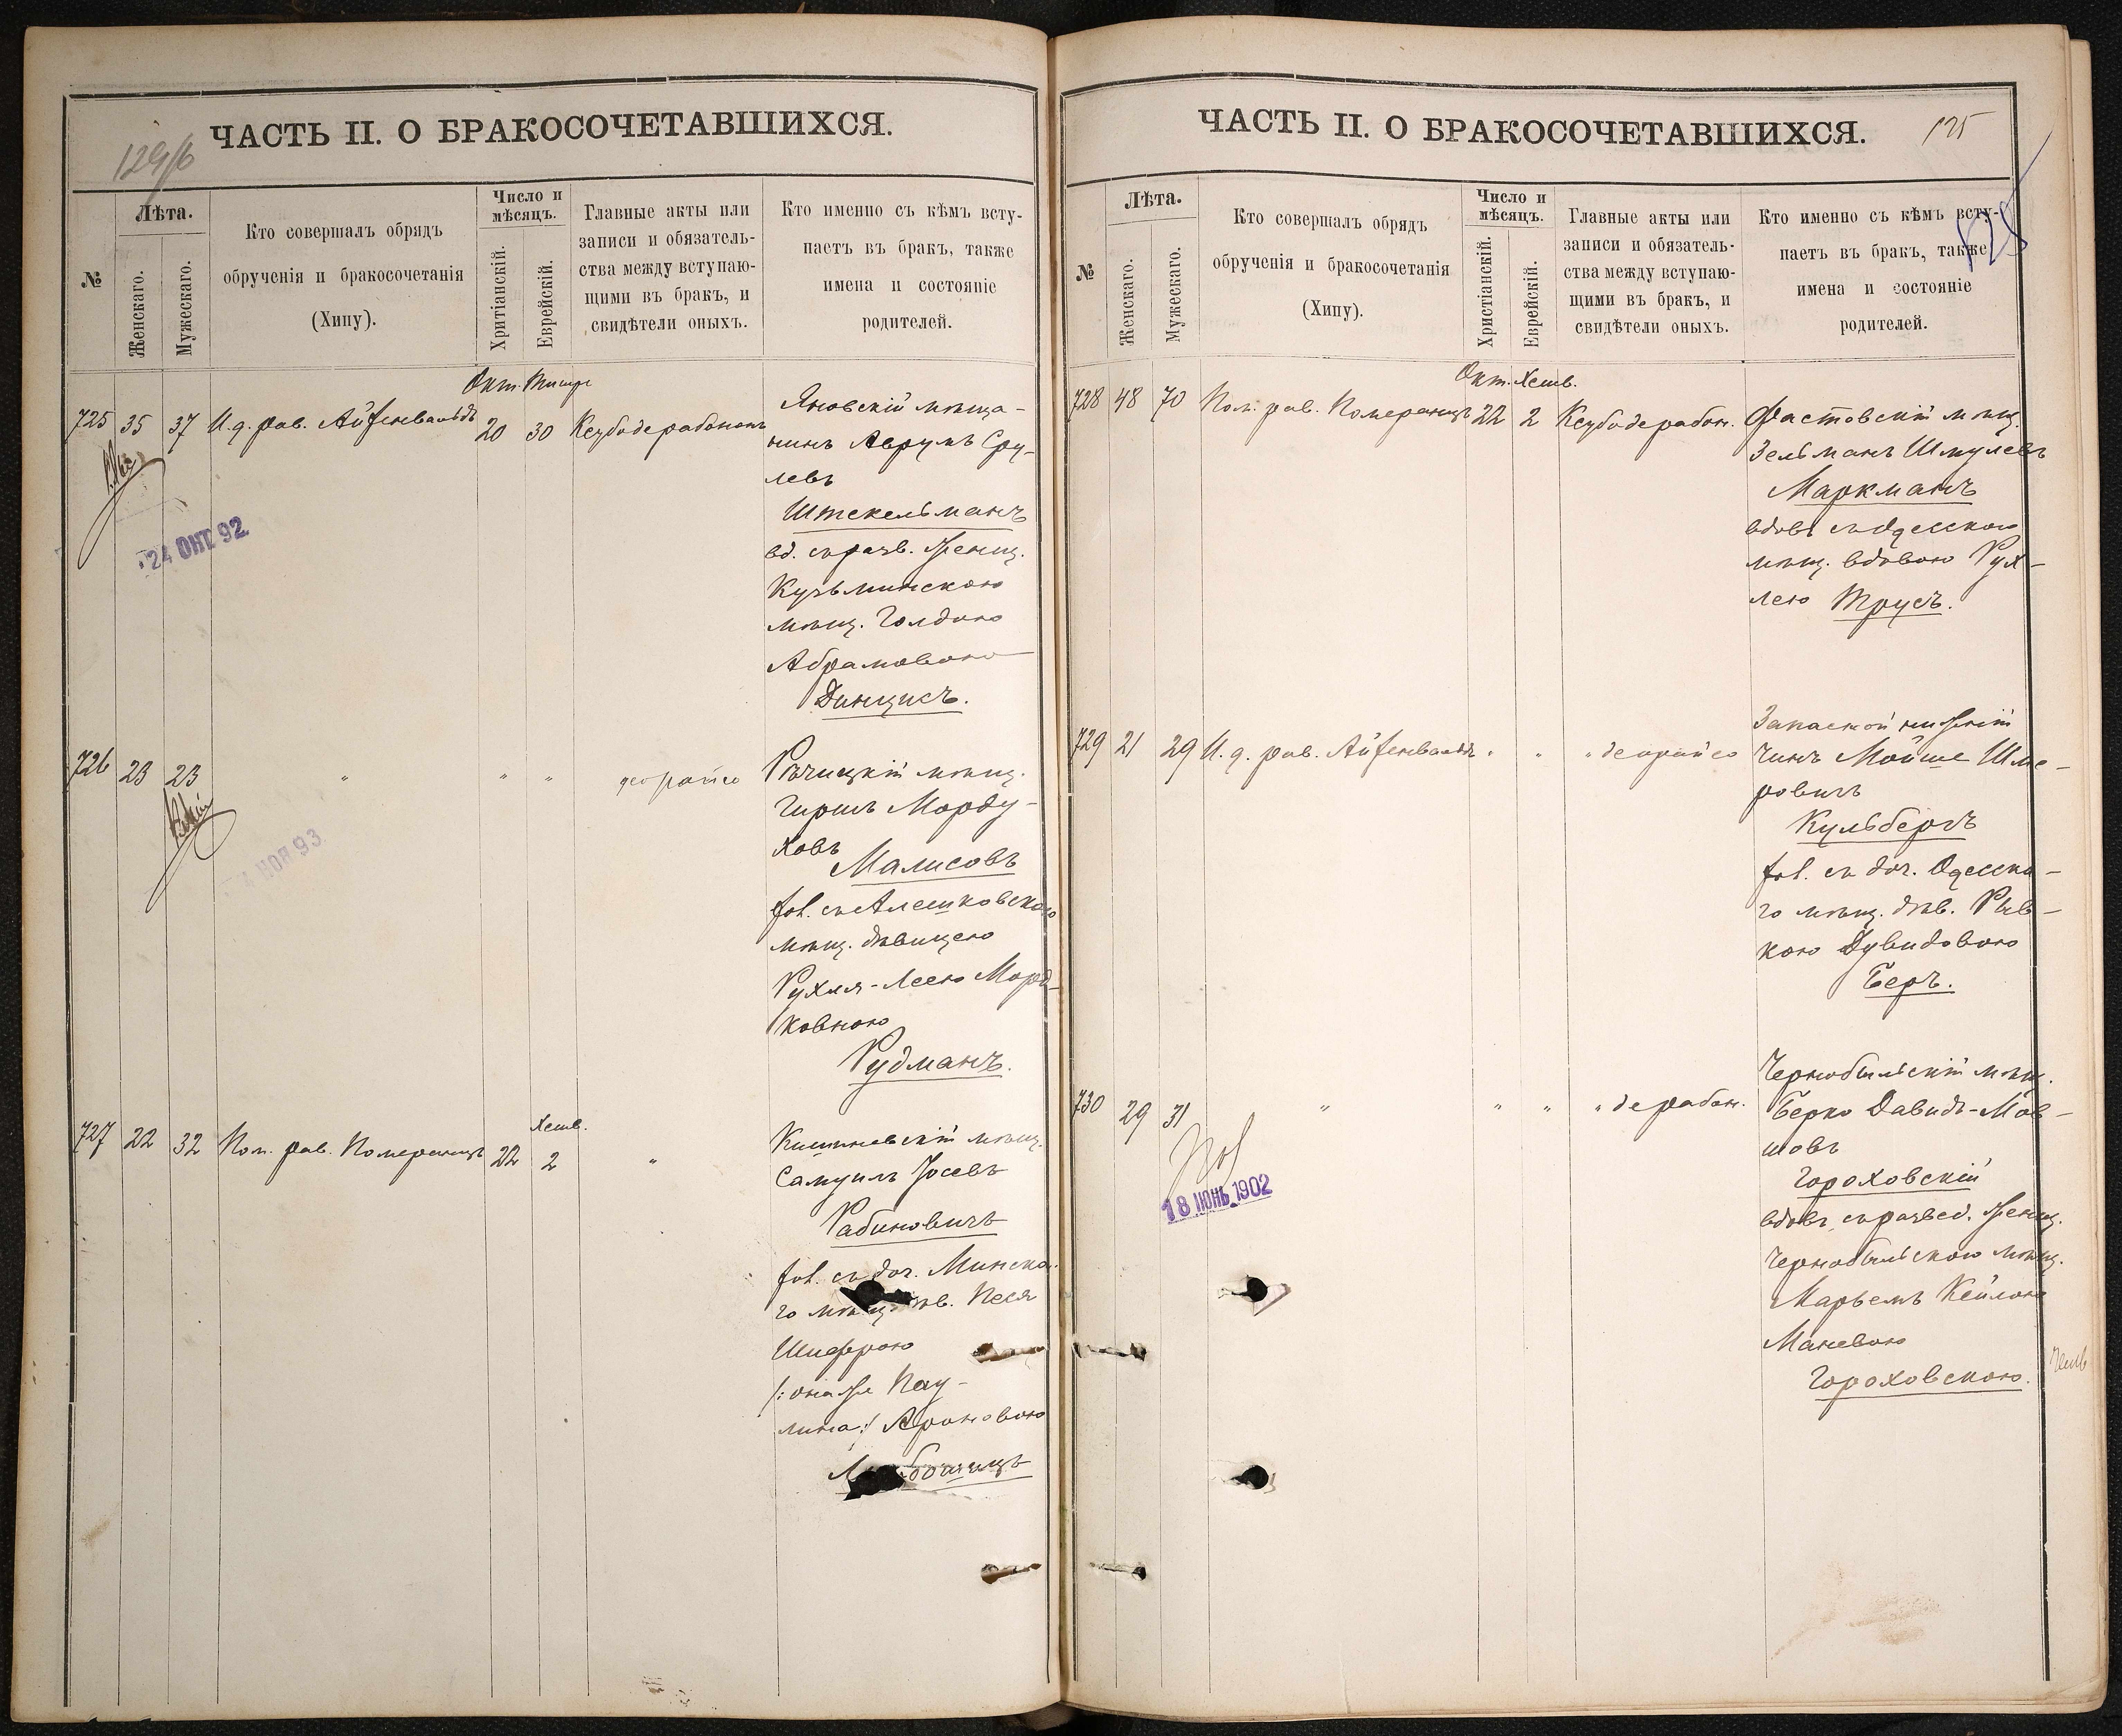 ЧАСТЬ II. О БРАКОСОЧЕТАВШИХСЯ.
№
Лѣта.
Женскаго.
Мужескаго.
Кто совершалъ обрядъ
обрученія и бракосочетанія
(Хипу).
Число и
мѣсяцъ.
Хритіанскій.
Еврейскій.
Главные акты или
записи и обязатель-
ства между вступаю-
щими въ бракъ, и
свидѣтели оныхъ.
Кто именно съ кѣмъ всту-
паетъ въ бракъ, также
имена и состояніе
родителей.
Окт. Тишре
725 35 37 И. д. рав. Айзенвальдъ 20 30 Ксубо дерабонон
Яновскій мѣща-
нинъ Аврумъ Сру-
левъ
Штекельманъ
вд. съ разв. женщ.
Кузьминскою
мѣщ. Голдою
Абрамовою
Динцисъ.
24 ОКТ 92
726 23 23 " " " деорайсо
Рѣчицкій мѣщ.
Гиршъ Морду-
ховъ
Малисовъ
хол. съ Алешковскою
мѣщ. дѣвицею
Рухля-Леею Морд-
ковною
Рудманъ.
НОЯ 93
Хешв.
727 22 32 Пом. рав. Померанцъ 22 2 "
Кишиневскій мѣщ.
Самуилъ Іосевъ
Рабиновичъ
хол. съ доч. Минска-
го мѣщ. дѣв. Песя
Шифрою
/:она же Пау-
лина:/ Ароновою
ЧАСТЬ II. О БРАКОСОЧЕТАВШИХСЯ.
125
125
№
Лѣта.
Женскаго.
Мужескаго.
Кто совершалъ обрядъ
обрученія и бракосочетанія
(Хипу).
Число и
мѣсяцъ.
Христіанскій.
Еврейскій.
Главные акты или
записи и обязатель-
ства между вступаю-
щими въ бракъ, и
свидѣтели оныхъ.
Кто именно съ кѣмъ всту-
паетъ въ бракъ, также
имена и состояніе
родителей.
Окт. Хешв.
728 48 70 Пом. рав. Померанцъ 22 2 Ксубо дерабон.
Фастовскій мѣщ.
Зельманъ Шмулевъ
Маркманъ
вдовъ съ Одесскою
мѣщ. вдовою Рух-
лею Трусъ.
729 21 29 И. д. рав. Айзенвальдъ " " " деорайсо
Запасной нижній
чинъ Мойше Шме-
ровичъ
Кульбергъ
хол. съ доч. Одесска-
го мѣщ. дѣв. Рив-
кою Дувидовою
Беръ.
730 29 31 " " " " дерабон.
Чернобыльскій мѣщ.
Берко Давидъ-Мов-
шовъ
Гороховскій
вдовъ съ развед. женщ.
Чернобыльскою мѣщ.
Марьемъ Кейлою
Маневою
Гороховскою.
18 ІЮНЬ 1902